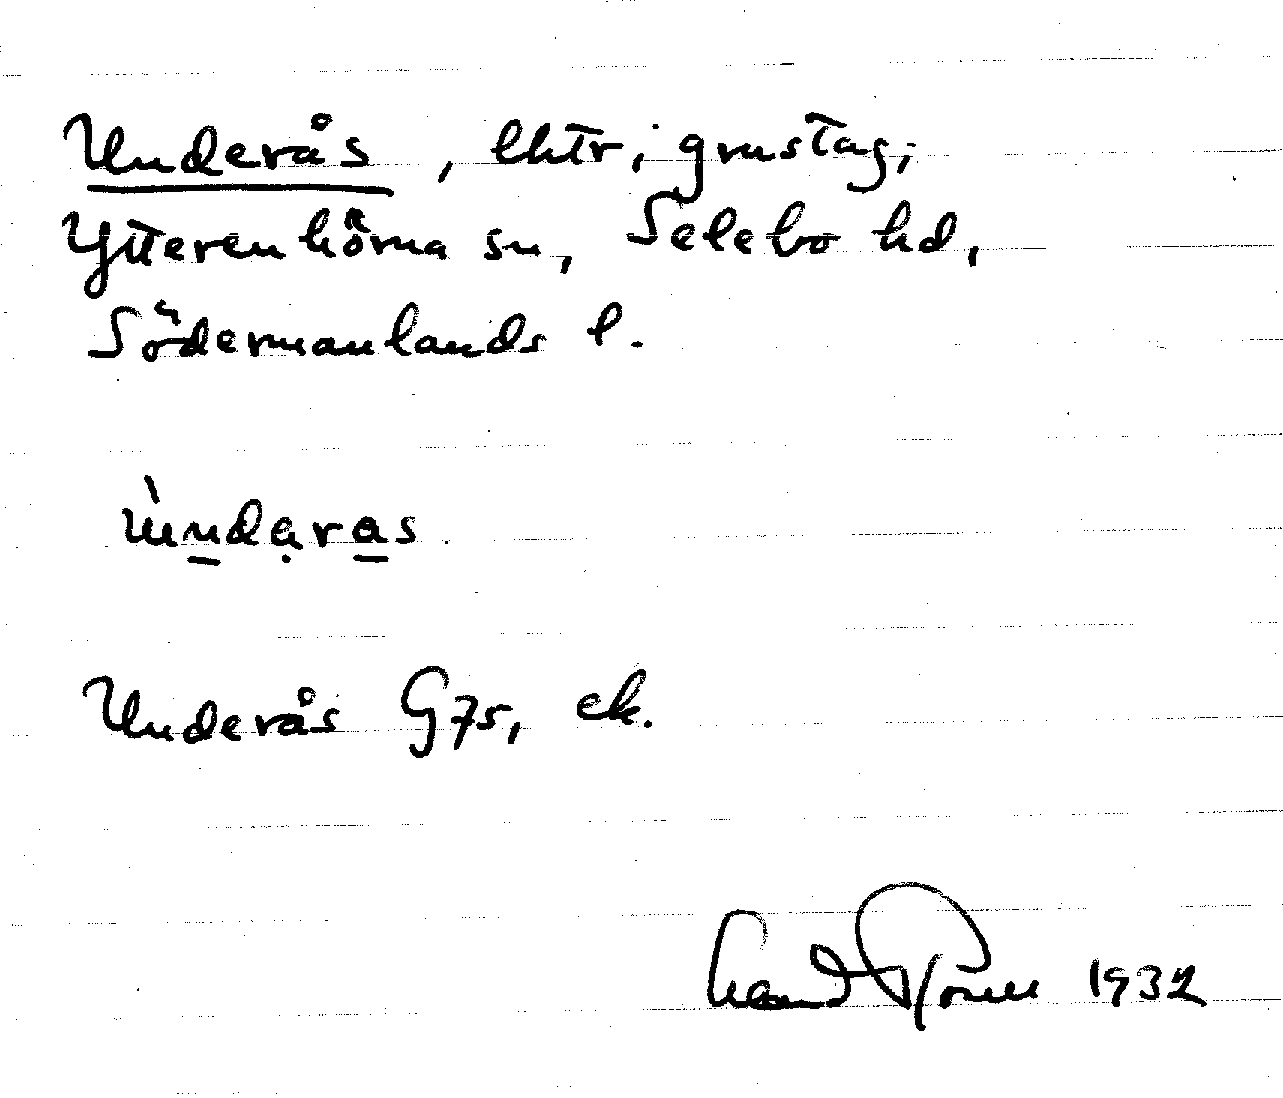 Underås, lhtr; grustag;
Ytterenhörna sn, Selebo hd,
Södermanlands l.
ùndąras
Underås G75, ek.
1932